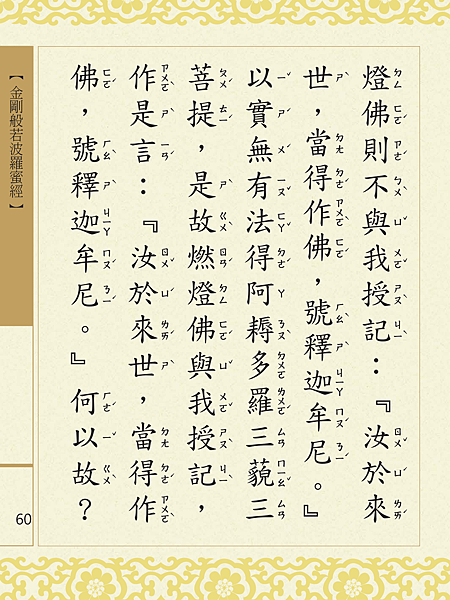 燈佛則不與我授記：『汝於來
世，當得作佛，號釋迦牟尼。』
以實無有法得阿耨多羅三藐三
菩提，是故燃燈佛與我授記，
作是言：『汝於來世，當得作
佛，號釋迦牟尼。』何以故？
【金剛般若波羅蜜經】
60